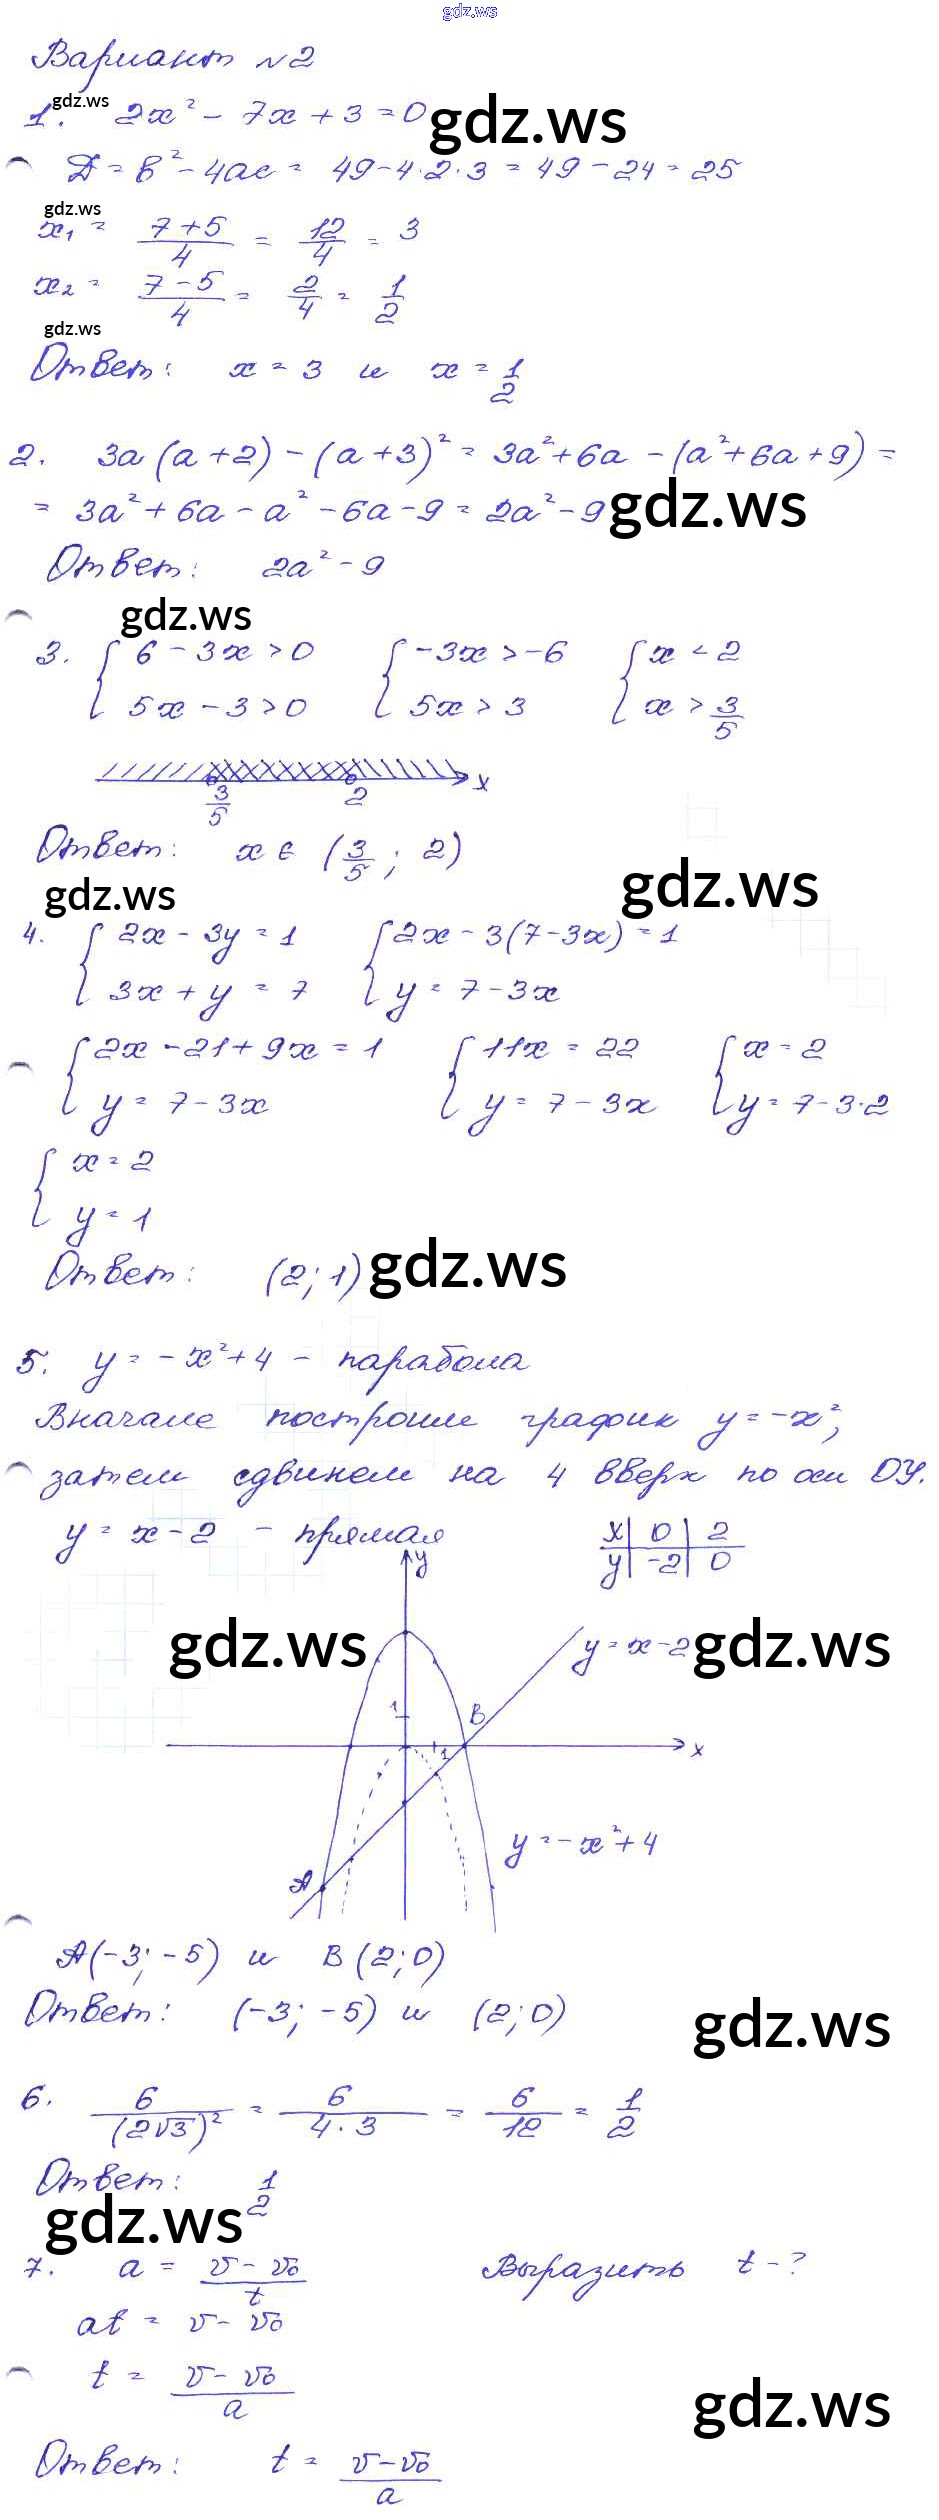 gdz.ws
Вариант №2
gdz.ws
1. 2x² - 7x + 3 = 0 gdz.ws
D = b² - 4ac = 49 - 4·2·3 = 49 - 24 = 25
gdz.ws
x₁ = (7+5)/4 = 12/4 = 3
x₂ = (7-5)/4 = 2/4 = 1/2
gdz.ws
Ответ: x = 3 и x = 1/2
2. 3a(a+2) - (a+3)² = 3a² + 6a - (a² + 6a + 9) =
= 3a² + 6a - a² - 6a - 9 = 2a² - 9 gdz.ws
Ответ: 2a² - 9
gdz.ws
3. { 6 - 3x > 0 { -3x > -6 { x < 2
5x - 3 > 0 5x > 3 x > 3/5
3/5 2 x
Ответ: x ∈ (3/5; 2)
gdz.ws gdz.ws
4. { 2x - 3y = 1 { 2x - 3(7 - 3x) = 1
3x + y = 7 y = 7 - 3x
{ 2x - 21 + 9x = 1 { 11x = 22 { x = 2
y = 7 - 3x y = 7 - 3x y = 7 - 3·2
{ x = 2
y = 1
Ответ: (2; 1) gdz.ws
5. y = -x² + 4 - парабола
Вначале построим график y = -x²,
затем сдвинем на 4 вверх по оси OY.
y = x - 2 - прямая x | 0 | 2
y | -2 | 0
y
gdz.ws y = x - 2 gdz.ws
1 B
1 x
y = -x² + 4
A
A(-3; -5) и B(2; 0)
Ответ: (-3; -5) и (2; 0) gdz.ws
6. 6/(2√3)² = 6/(4·3) = 6/12 = 1/2
Ответ: 1/2
gdz.ws
7. a = (v - v₀)/t Выразить t - ?
at = v - v₀
t = (v - v₀)/a
gdz.ws
Ответ: t = (v - v₀)/a